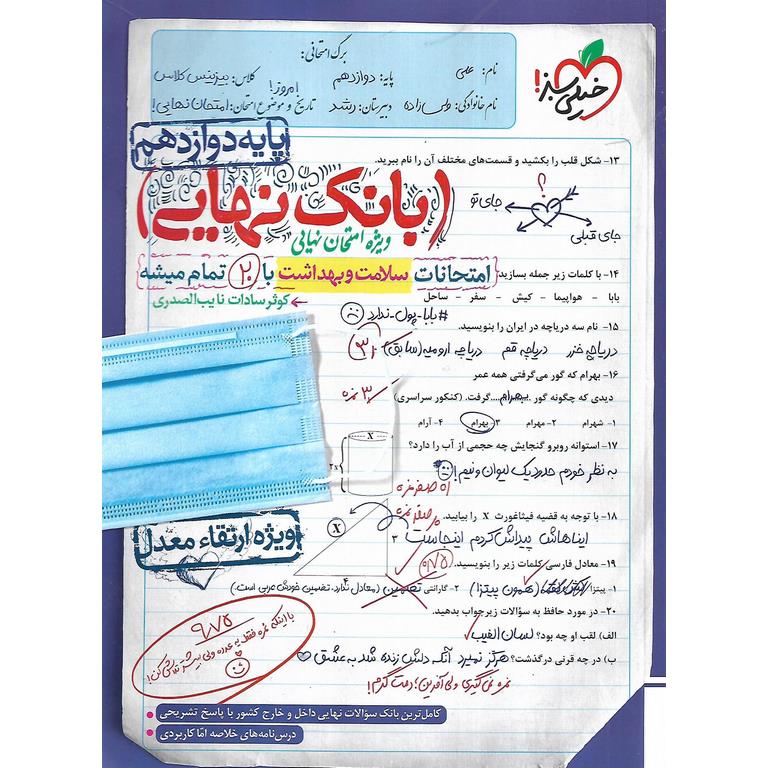 خیلی سبز!
برگ امتحانی:
نام: علی
پایه: دوازدهم
کلاس: بیزینس کلاس
نام خانوادگی: ولی‌زاده
دبیرستان: رشد
تاریخ و موضوع امتحان: امروز! امتحان نهایی!
پایه دوازدهم
(بانک نهایی)
ویژه امتحان نهایی
امتحانات سلامت و بهداشت با ۲۰ تمام میشه
کوثر سادات نایب‌الصدری
۱۳- شکل قلب را بکشید و قسمت‌های مختلف آن را نام ببرید.
؟
جای تو
جای قبلی
۱۴- با کلمات زیر جمله بسازید:
بابا - هواپیما - کیش - سفر - ساحل
#بابا-پول-ندارد
۱۵- نام سه دریاچه در ایران را بنویسید.
دریاچه خزر دریاچه قم دریاچه ارومیه (سابق)
۱۶- بهرام که گور می‌گرفتی همه عمر
دیدی که چگونه گور بهرام گرفت. (کنکور سراسری)
۳ نمره
۱- شهرام ۲- مهرام ۳- بهرام ۴- آرام
۱۷- استوانه روبرو گنجایش چه حجمی از آب را دارد؟
X
۲x
به نظر خودم حدود یک لیوان و نیم!
صفر نمره
۱۸- با توجه به قضیه فیثاغورث X را بیابید.
صفر نمره
X
۳
۴
ایناهاش پیداش کردم اینجاست
ویژه ارتقاء معدل
۱۹- معادل فارسی کلمات زیر را بنویسید.
۰/۷۵
۱- پیتزا (همون پیتزا) ۲- گارانتی تضمین (معادل ندارد. تضمین خودش عربی است.)
۲۰- در مورد حافظ به سؤالات زیر جواب بدهید.
الف) لقب او چه بود؟ لسان الغیب
ب) در چه قرنی درگذشت؟ هرگز نمیرد آنکه دلش زنده شد به عشق
نمره نمی‌گیری ولی آفرین! دمت گرم!
۹/۷۵
با اینکه نمره فقط یه عدده ولی بیشتر تلاش کن!
کامل‌ترین بانک سؤالات نهایی داخل و خارج کشور با پاسخ تشریحی
درس‌نامه‌های خلاصه امّا کاربردی